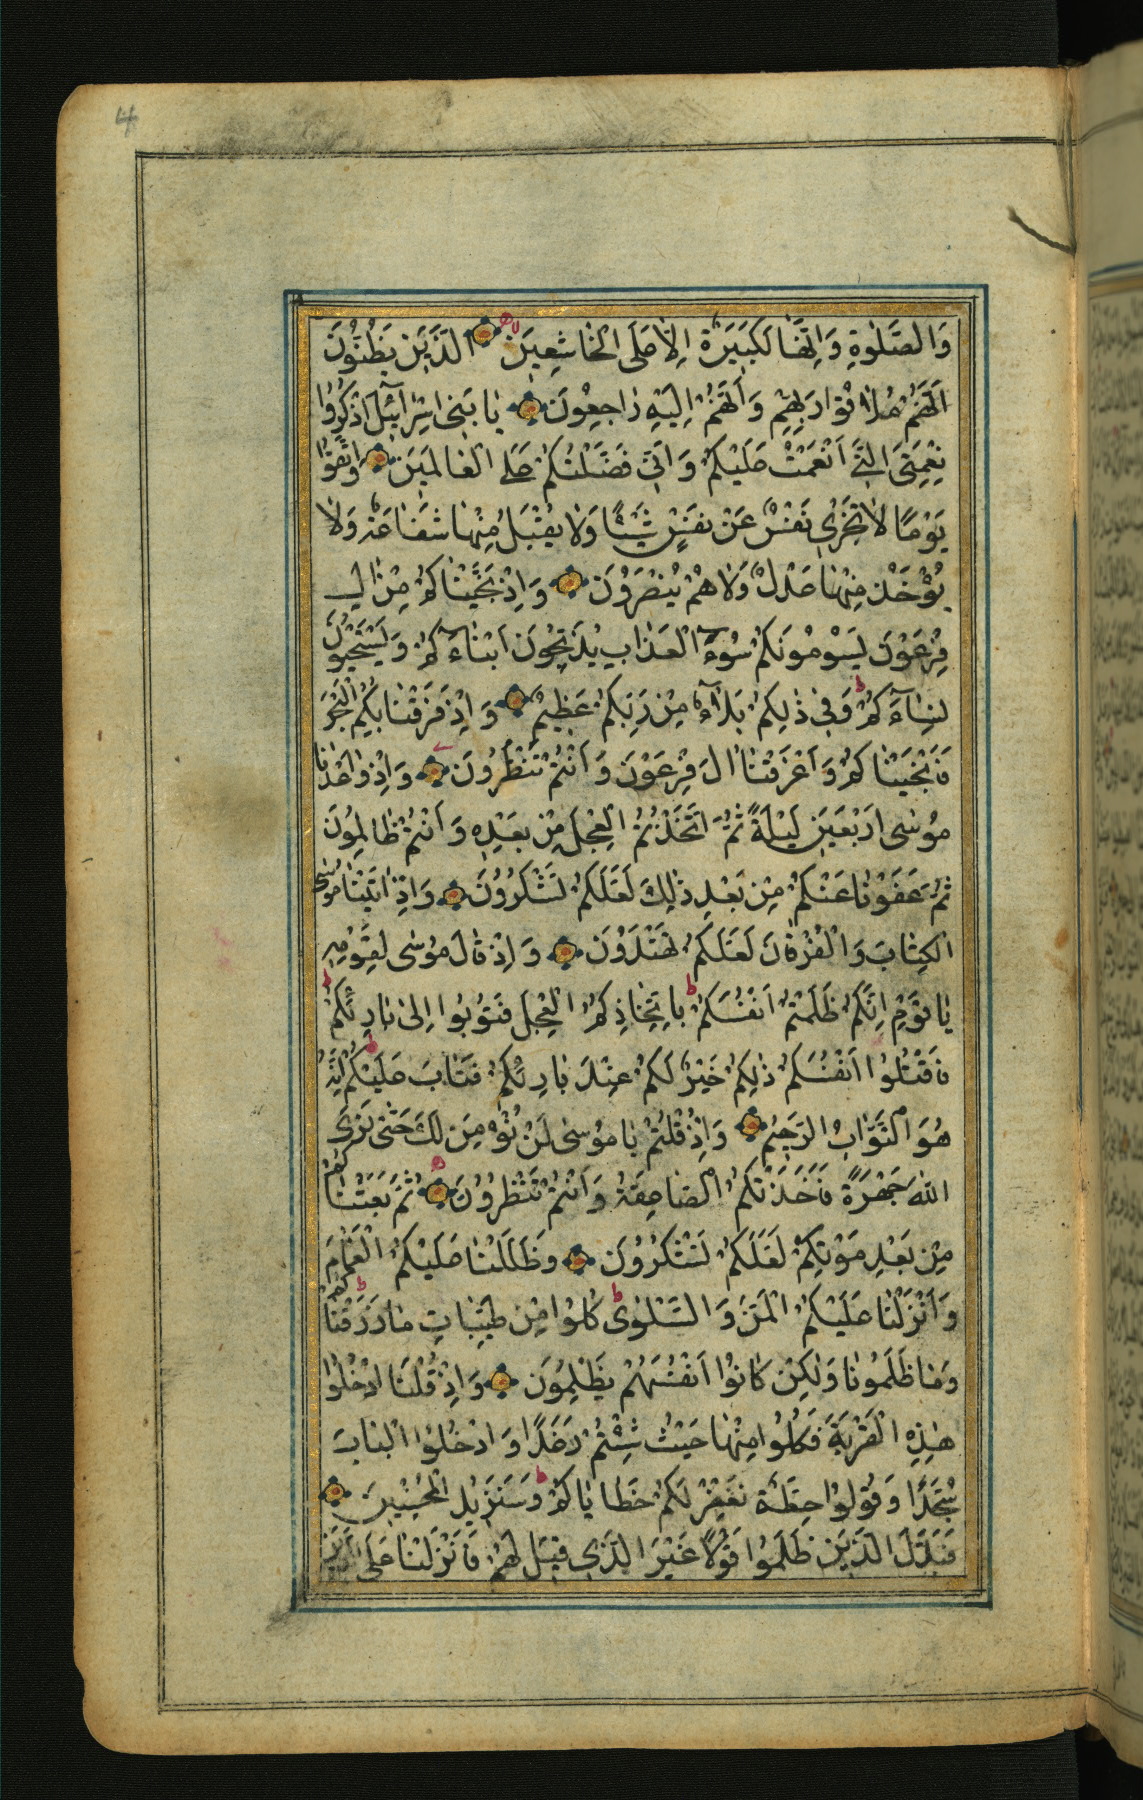 4
وَالصَّلٰوةِ وَاِنَّهَا لَكَبِيرَةٌ اِلَّا عَلَى الْخَاشِعِينَ الَّذِينَ يَظُنُّونَ
اَنَّهُمْ مُلَاقُوا رَبِّهِمْ وَاَنَّهُمْ اِلَيْهِ رَاجِعُونَ يَا بَنِي اِسْرَآئِيلَ اذْكُرُوا
نِعْمَتِيَ الَّتِي اَنْعَمْتُ عَلَيْكُمْ وَاَنِّي فَضَّلْتُكُمْ عَلَى الْعَالَمِينَ وَاتَّقُوا
يَوْمًا لَا تَجْزِي نَفْسٌ عَنْ نَفْسٍ شَيْئًا وَلَا يُقْبَلُ مِنْهَا شَفَاعَةٌ وَلَا
يُؤْخَذُ مِنْهَا عَدْلٌ وَلَا هُمْ يُنْصَرُونَ وَاِذْ نَجَّيْنَاكُمْ مِنْ اٰلِ
فِرْعَوْنَ يَسُومُونَكُمْ سُوٓءَ الْعَذَابِ يُذَبِّحُونَ اَبْنَآءَكُمْ وَيَسْتَحْيُونَ
نِسَآءَكُمْ وَفِي ذٰلِكُمْ بَلَآءٌ مِنْ رَبِّكُمْ عَظِيمٌ وَاِذْ فَرَقْنَا بِكُمُ الْبَحْرَ
فَاَنْجَيْنَاكُمْ وَاَغْرَقْنَا اٰلَ فِرْعَوْنَ وَاَنْتُمْ تَنْظُرُونَ وَاِذْ وَاعَدْنَا
مُوسٰى اَرْبَعِينَ لَيْلَةً ثُمَّ اتَّخَذْتُمُ الْعِجْلَ مِنْ بَعْدِهِ وَاَنْتُمْ ظَالِمُونَ
ثُمَّ عَفَوْنَا عَنْكُمْ مِنْ بَعْدِ ذٰلِكَ لَعَلَّكُمْ تَشْكُرُونَ وَاِذْ اٰتَيْنَا مُوسَى
الْكِتَابَ وَالْفُرْقَانَ لَعَلَّكُمْ تَهْتَدُونَ وَاِذْ قَالَ مُوسٰى لِقَوْمِهِ
يَا قَوْمِ اِنَّكُمْ ظَلَمْتُمْ اَنْفُسَكُمْ بِاتِّخَاذِكُمُ الْعِجْلَ فَتُوبُوا اِلٰى بَارِئِكُمْ
فَاقْتُلُوا اَنْفُسَكُمْ ذٰلِكُمْ خَيْرٌ لَكُمْ عِنْدَ بَارِئِكُمْ فَتَابَ عَلَيْكُمْ اِنَّهُ
هُوَ التَّوَّابُ الرَّحِيمُ وَاِذْ قُلْتُمْ يَا مُوسٰى لَنْ نُؤْمِنَ لَكَ حَتّٰى نَرَى
اللّٰهَ جَهْرَةً فَاَخَذَتْكُمُ الصَّاعِقَةُ وَاَنْتُمْ تَنْظُرُونَ ثُمَّ بَعَثْنَاكُمْ
مِنْ بَعْدِ مَوْتِكُمْ لَعَلَّكُمْ تَشْكُرُونَ وَظَلَّلْنَا عَلَيْكُمُ الْغَمَامَ
وَاَنْزَلْنَا عَلَيْكُمُ الْمَنَّ وَالسَّلْوٰى كُلُوا مِنْ طَيِّبَاتِ مَا رَزَقْنَاكُمْ
وَمَا ظَلَمُونَا وَلٰكِنْ كَانُوا اَنْفُسَهُمْ يَظْلِمُونَ وَاِذْ قُلْنَا ادْخُلُوا
هٰذِهِ الْقَرْيَةَ فَكُلُوا مِنْهَا حَيْثُ شِئْتُمْ رَغَدًا وَادْخُلُوا الْبَابَ
سُجَّدًا وَقُولُوا حِطَّةٌ نَغْفِرْ لَكُمْ خَطَايَاكُمْ وَسَنَزِيدُ الْمُحْسِنِينَ
فَبَدَّلَ الَّذِينَ ظَلَمُوا قَوْلًا غَيْرَ الَّذِي قِيلَ لَهُمْ فَاَنْزَلْنَا عَلَى الَّذِينَ